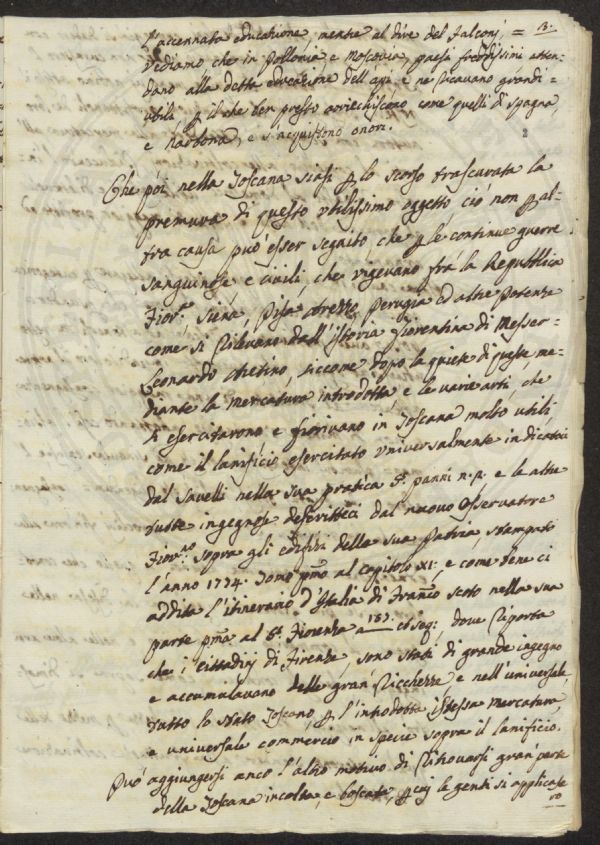 3.
l'accennata educazione, mentre al dire del Falconj, =
vediamo che in Pollonia e Moscovia, paesi freddissimi atten-
dano alla detta educazione dell'api e ne ricavano grandi=
utili p il che ben presto arrichiscono come quelli di Spagna,
e Narbona, e s'acquistono onori.
2
Che poi nella Toscana siasi p lo scorso trascurata la
premura di questo utilissimo oggetto ciò non p al-
tra causa può esser seguito che p le continue guerre
sanguinose e civili che vigevano frà la Republica
Fior.na Siena, Pisa Arezzo Perugia ed altre Potenze
come si rilevano dall'Istoria fiorentina di Messer-
Leonardo Aretino, siccome dopo la quiete di queste, me=
diante la mercatura introdotta, e le varie arti, che
si esercitarono e fiorivano in Toscana molto utili
come il lanificio esercitato universalmente indicatoci
dal Savelli nella sua pratica §. panni n.4. e le altre
tutte ingegnose descritteci dal nuovo Osservatore
Fior.no sopra gli edifizi della sua Patria, stampato
l'anno 1774. Tomo pmo al capitolo XI:, e come bene ci
addita l'itinerario d'Italia di Franco Scoto nella sua
parte pma al §. Fiorenza a 187. et seq: dove riporta
che i Cittadinj di Firenze, sono stati di grande ingegno
e accumulavano delle gran' ricchezze e nell'universale,
tutto lo stato Toscano p l'introdotta istessa mercatura,
e universale commercio in specie sopra il lanificio.
Può aggiungersi anco l'altro motivo di ritrovarsi gran' parte
della Toscana incolta, e boscata, p cui le genti si applicase
ro